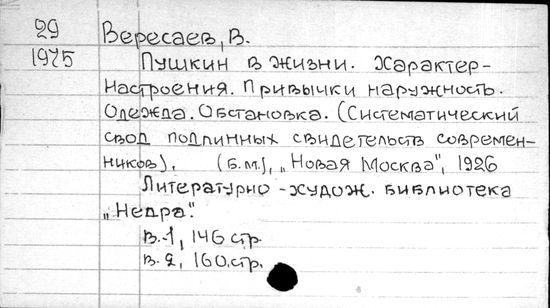 29 Вересаев, В.
1975 Пушкин в жизни. Характер-
Настроения. Привычки наружность.
Одежда. Обстановка. (Систематический
свод подлинных свидетельств современ-
ников). (Б.м.), „Новая Москва", 1926
Литературно-худож. библиотека
„Недра".
В.-1, 146 стр
В. 2, 160.стр.